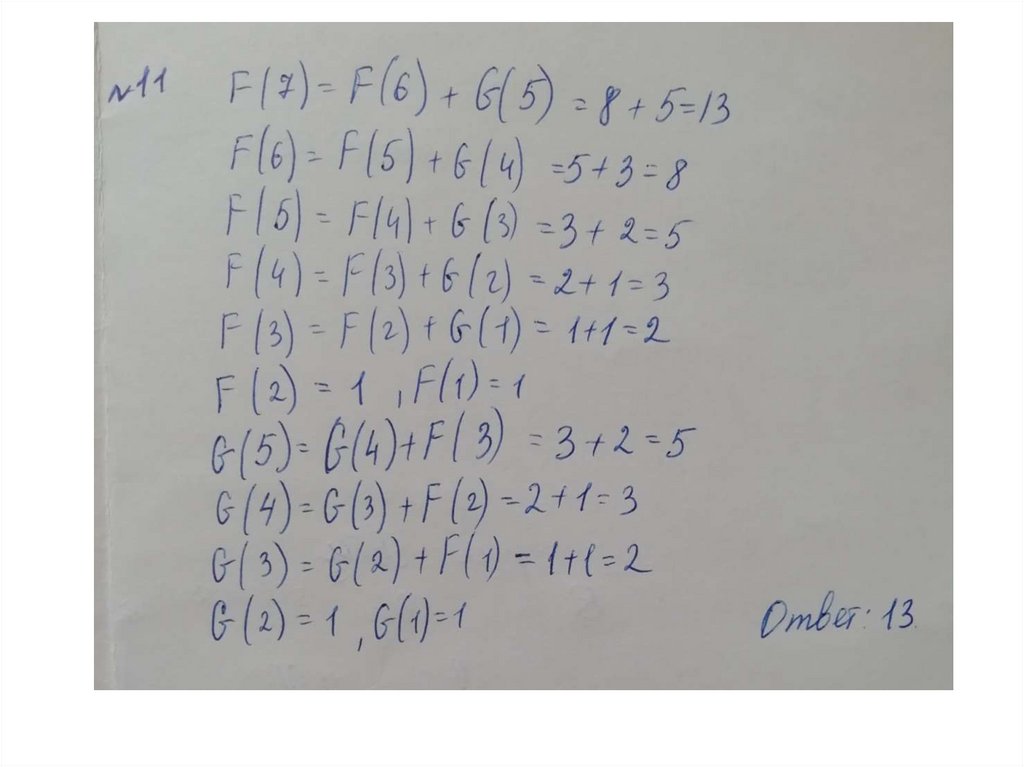 №11 F(7) = F(6) + G(5) = 8 + 5 = 13
F(6) = F(5) + G(4) = 5 + 3 = 8
F(5) = F(4) + G(3) = 3 + 2 = 5
F(4) = F(3) + G(2) = 2 + 1 = 3
F(3) = F(2) + G(1) = 1 + 1 = 2
F(2) = 1 , F(1) = 1
G(5) = G(4) + F(3) = 3 + 2 = 5
G(4) = G(3) + F(2) = 2 + 1 = 3
G(3) = G(2) + F(1) = 1 + 1 = 2
G(2) = 1 , G(1) = 1
Ответ: 13.